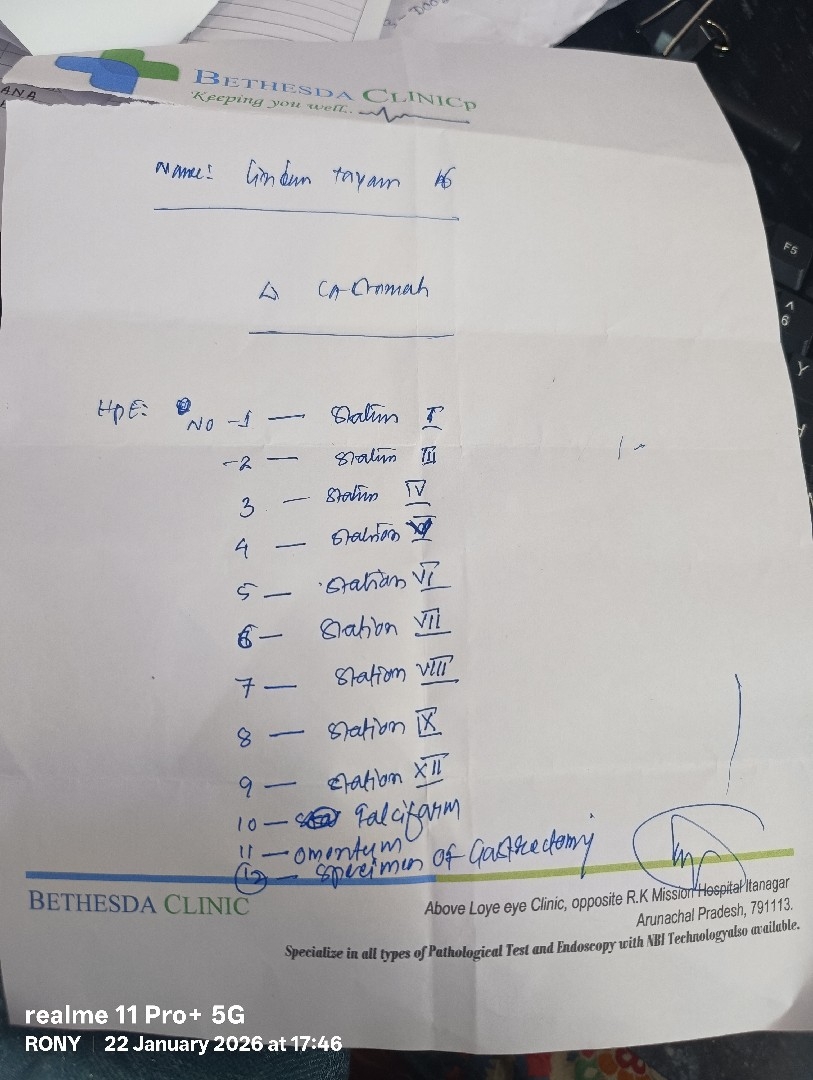 ANA
BETHESDA CLINICp
Keeping you well..
Name: tayam
Δ CA
HPE: NO -1 — Station I
-2 — Station III
3 — Station IV
4 — Station
5 — Station VI
6 — Station VII
7 — Station VIII
8 — Station IX
9 — Station XII
10 — Falcifarm
11 — omentum
12 — specimen OF Gastrectomy
BETHESDA CLINIC
Above Loye eye Clinic, opposite R.K Mission Hospital Itanagar
Arunachal Pradesh, 791113.
Specialize in all types of Pathological Test and Endoscopy with NBI Technologyalso available.
F5
^
6
Y
realme 11 Pro+ 5G
RONY 22 January 2026 at 17:46